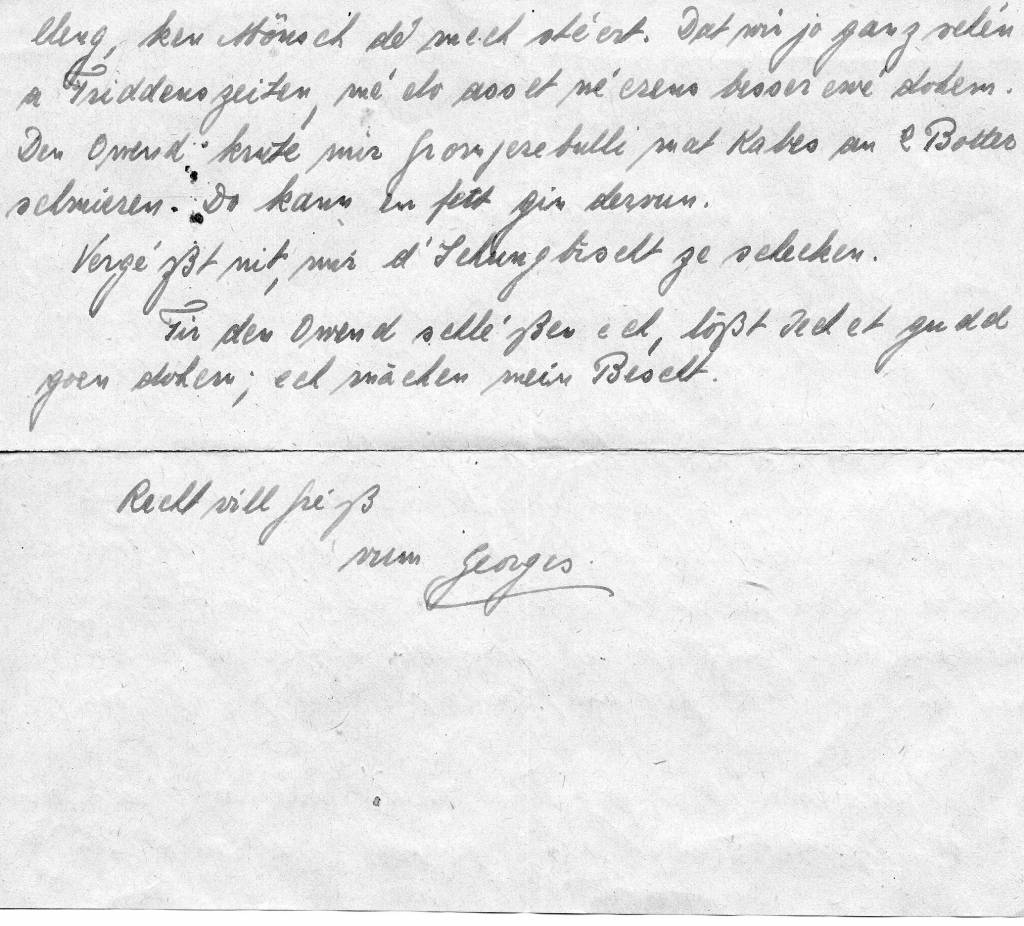 eleng, ken Mönsch dé mech stéert. Dat wir jo ganz schén
a Friddenszeiten, mé elo ass et nérens besser ewé dohem.
Den Owend krute mir Gromperebulli mat Kabes an e Botter
schmieren. Do kann en fett gin dervun.
Vergéßt nit, mir d'Schungbischt ze schecken.
Fir den Owend schléßen ech, lößt Iech et gudd
goen dohem; ech māchen mein Bescht.
Recht vill Gréß
vum Georges